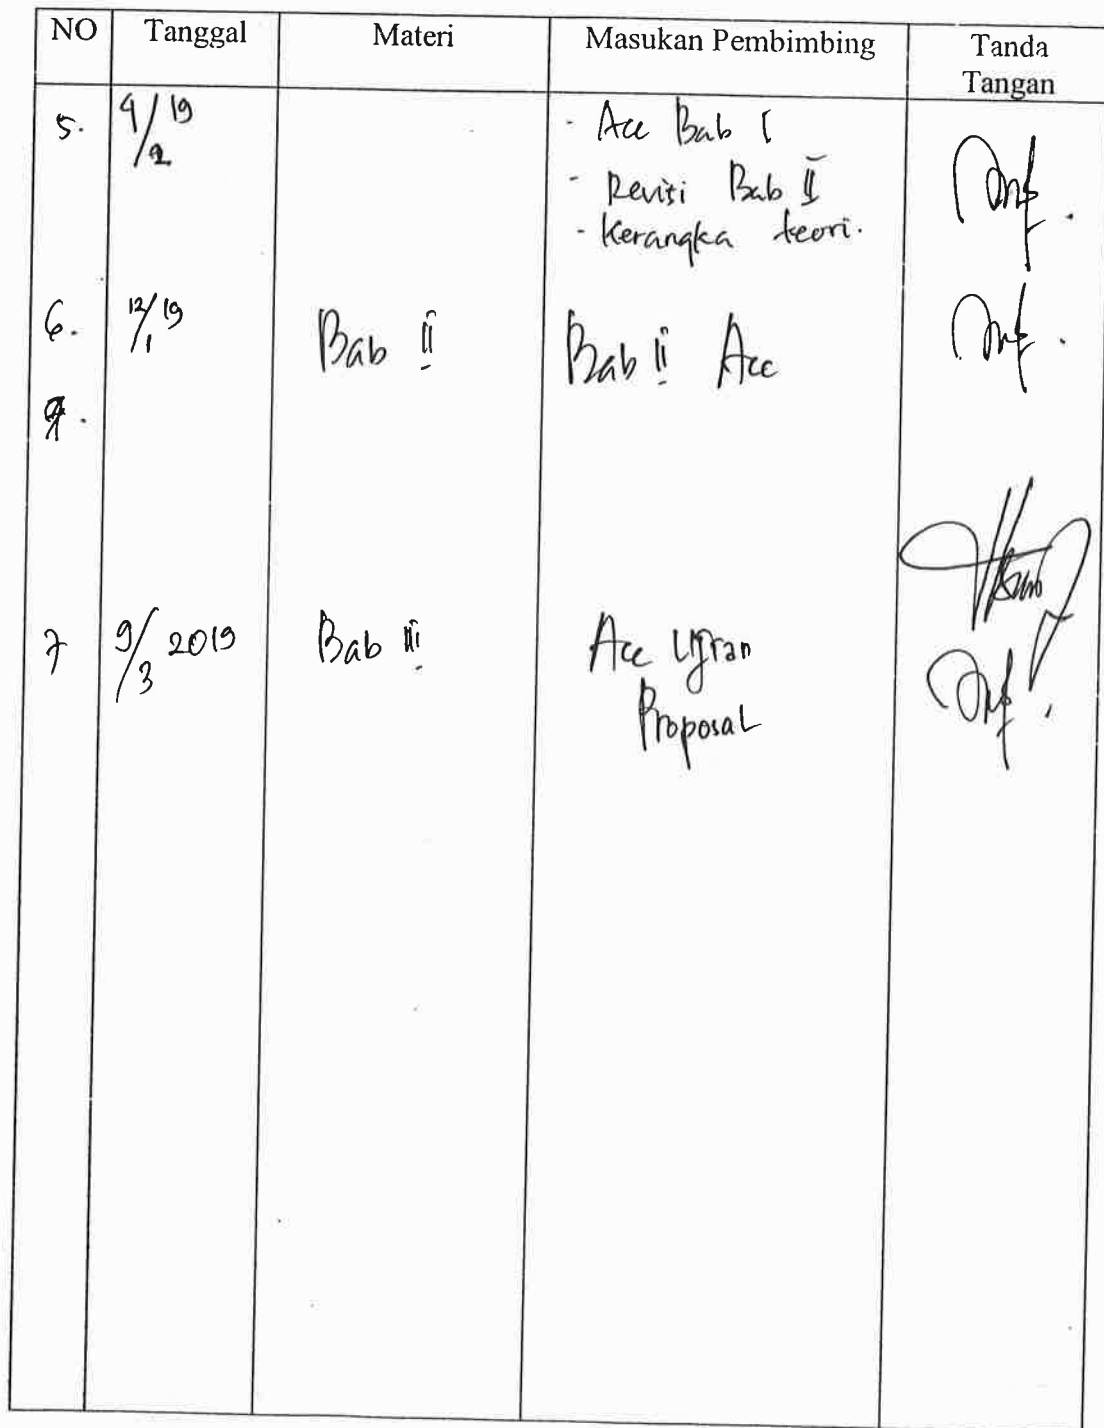 NO Tanggal Materi Masukan Pembimbing Tanda
Tangan
5. 4/2 19 - Acc Bab I
- Revisi Bab II
- Kerangka teori.
6. 12/1 19 Bab II Bab II Acc
7 9/3 2019 Bab III Acc Ujian
Proposal